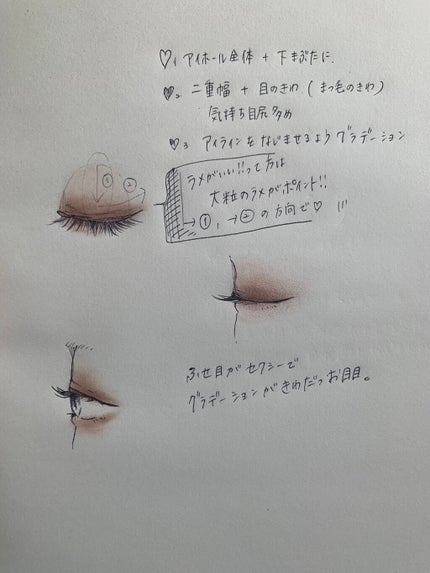 ♡1 アイホール全体 + 下まぶたに.
♥2 二重幅 + 目のきわ ( まつ毛のきわ )
気持ち目尻多め
♥3 アイラインをなじませるようグラデーション
ラメがいい!!って方は
大粒のラメがポイント!!
→①, →②の方向で♡
① ②
ふせ目がセクシーで
グラデーションがきわだつお目目。